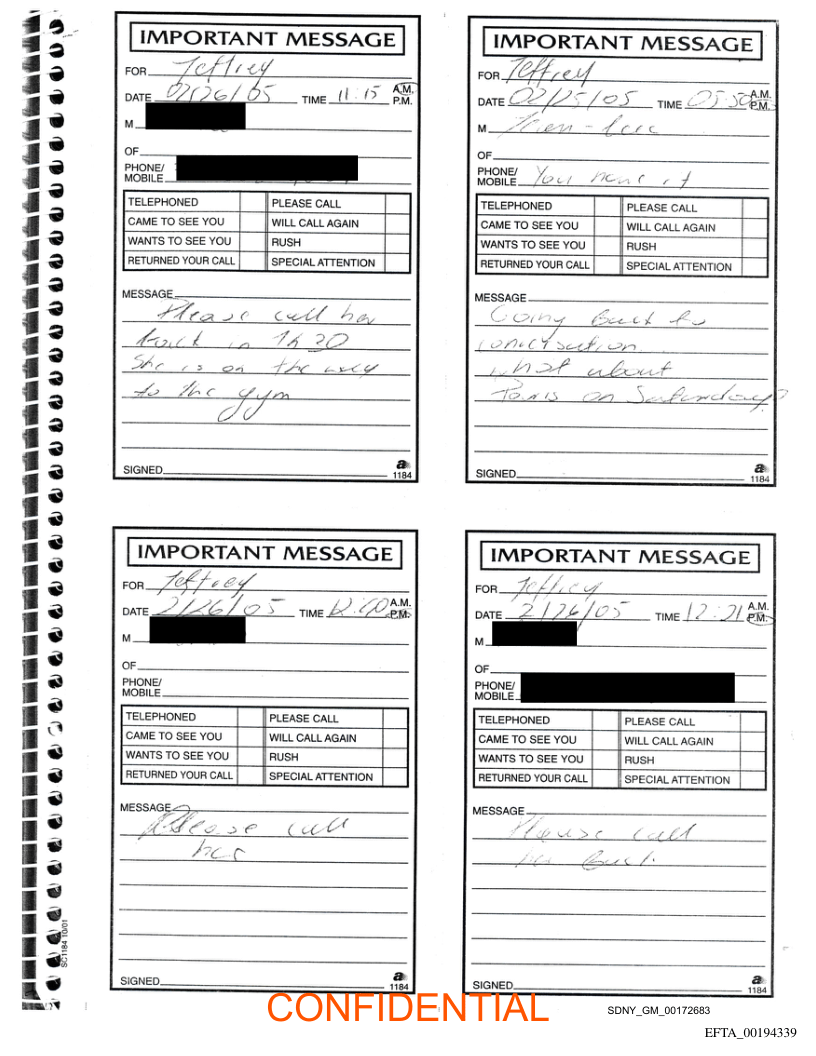 IMPORTANT MESSAGE
FOR Jeffrey
DATE 02/26/05 TIME 11:15 A.M. P.M.
M
OF
PHONE/ MOBILE
TELEPHONED PLEASE CALL
CAME TO SEE YOU WILL CALL AGAIN
WANTS TO SEE YOU RUSH
RETURNED YOUR CALL SPECIAL ATTENTION
MESSAGE Please call her
back in 1h20
She is on the way
to the gym
SIGNED
a
1184
IMPORTANT MESSAGE
FOR Jeffrey
DATE 02/25/05 TIME 05:50 A.M. P.M.
M Jean-Luc
OF
PHONE/ MOBILE You have it
TELEPHONED PLEASE CALL
CAME TO SEE YOU WILL CALL AGAIN
WANTS TO SEE YOU RUSH
RETURNED YOUR CALL SPECIAL ATTENTION
MESSAGE
Going Back to
conversation
what about
Paris on Saturday?
SIGNED
a
1184
IMPORTANT MESSAGE
FOR Jeffrey
DATE 2/26/05 TIME 12:00 A.M. P.M.
M
OF
PHONE/ MOBILE
TELEPHONED PLEASE CALL
CAME TO SEE YOU WILL CALL AGAIN
WANTS TO SEE YOU RUSH
RETURNED YOUR CALL SPECIAL ATTENTION
MESSAGE
Please call
her
SIGNED
a
1184
IMPORTANT MESSAGE
FOR Jeffrey
DATE 2/26/05 TIME 12:21 A.M. P.M.
M
OF
PHONE/ MOBILE
TELEPHONED PLEASE CALL
CAME TO SEE YOU WILL CALL AGAIN
WANTS TO SEE YOU RUSH
RETURNED YOUR CALL SPECIAL ATTENTION
MESSAGE
Please call
her Back
SIGNED
a
1184
SC1184 10/01
CONFIDENTIAL
SDNY_GM_00172683
EFTA_00194339